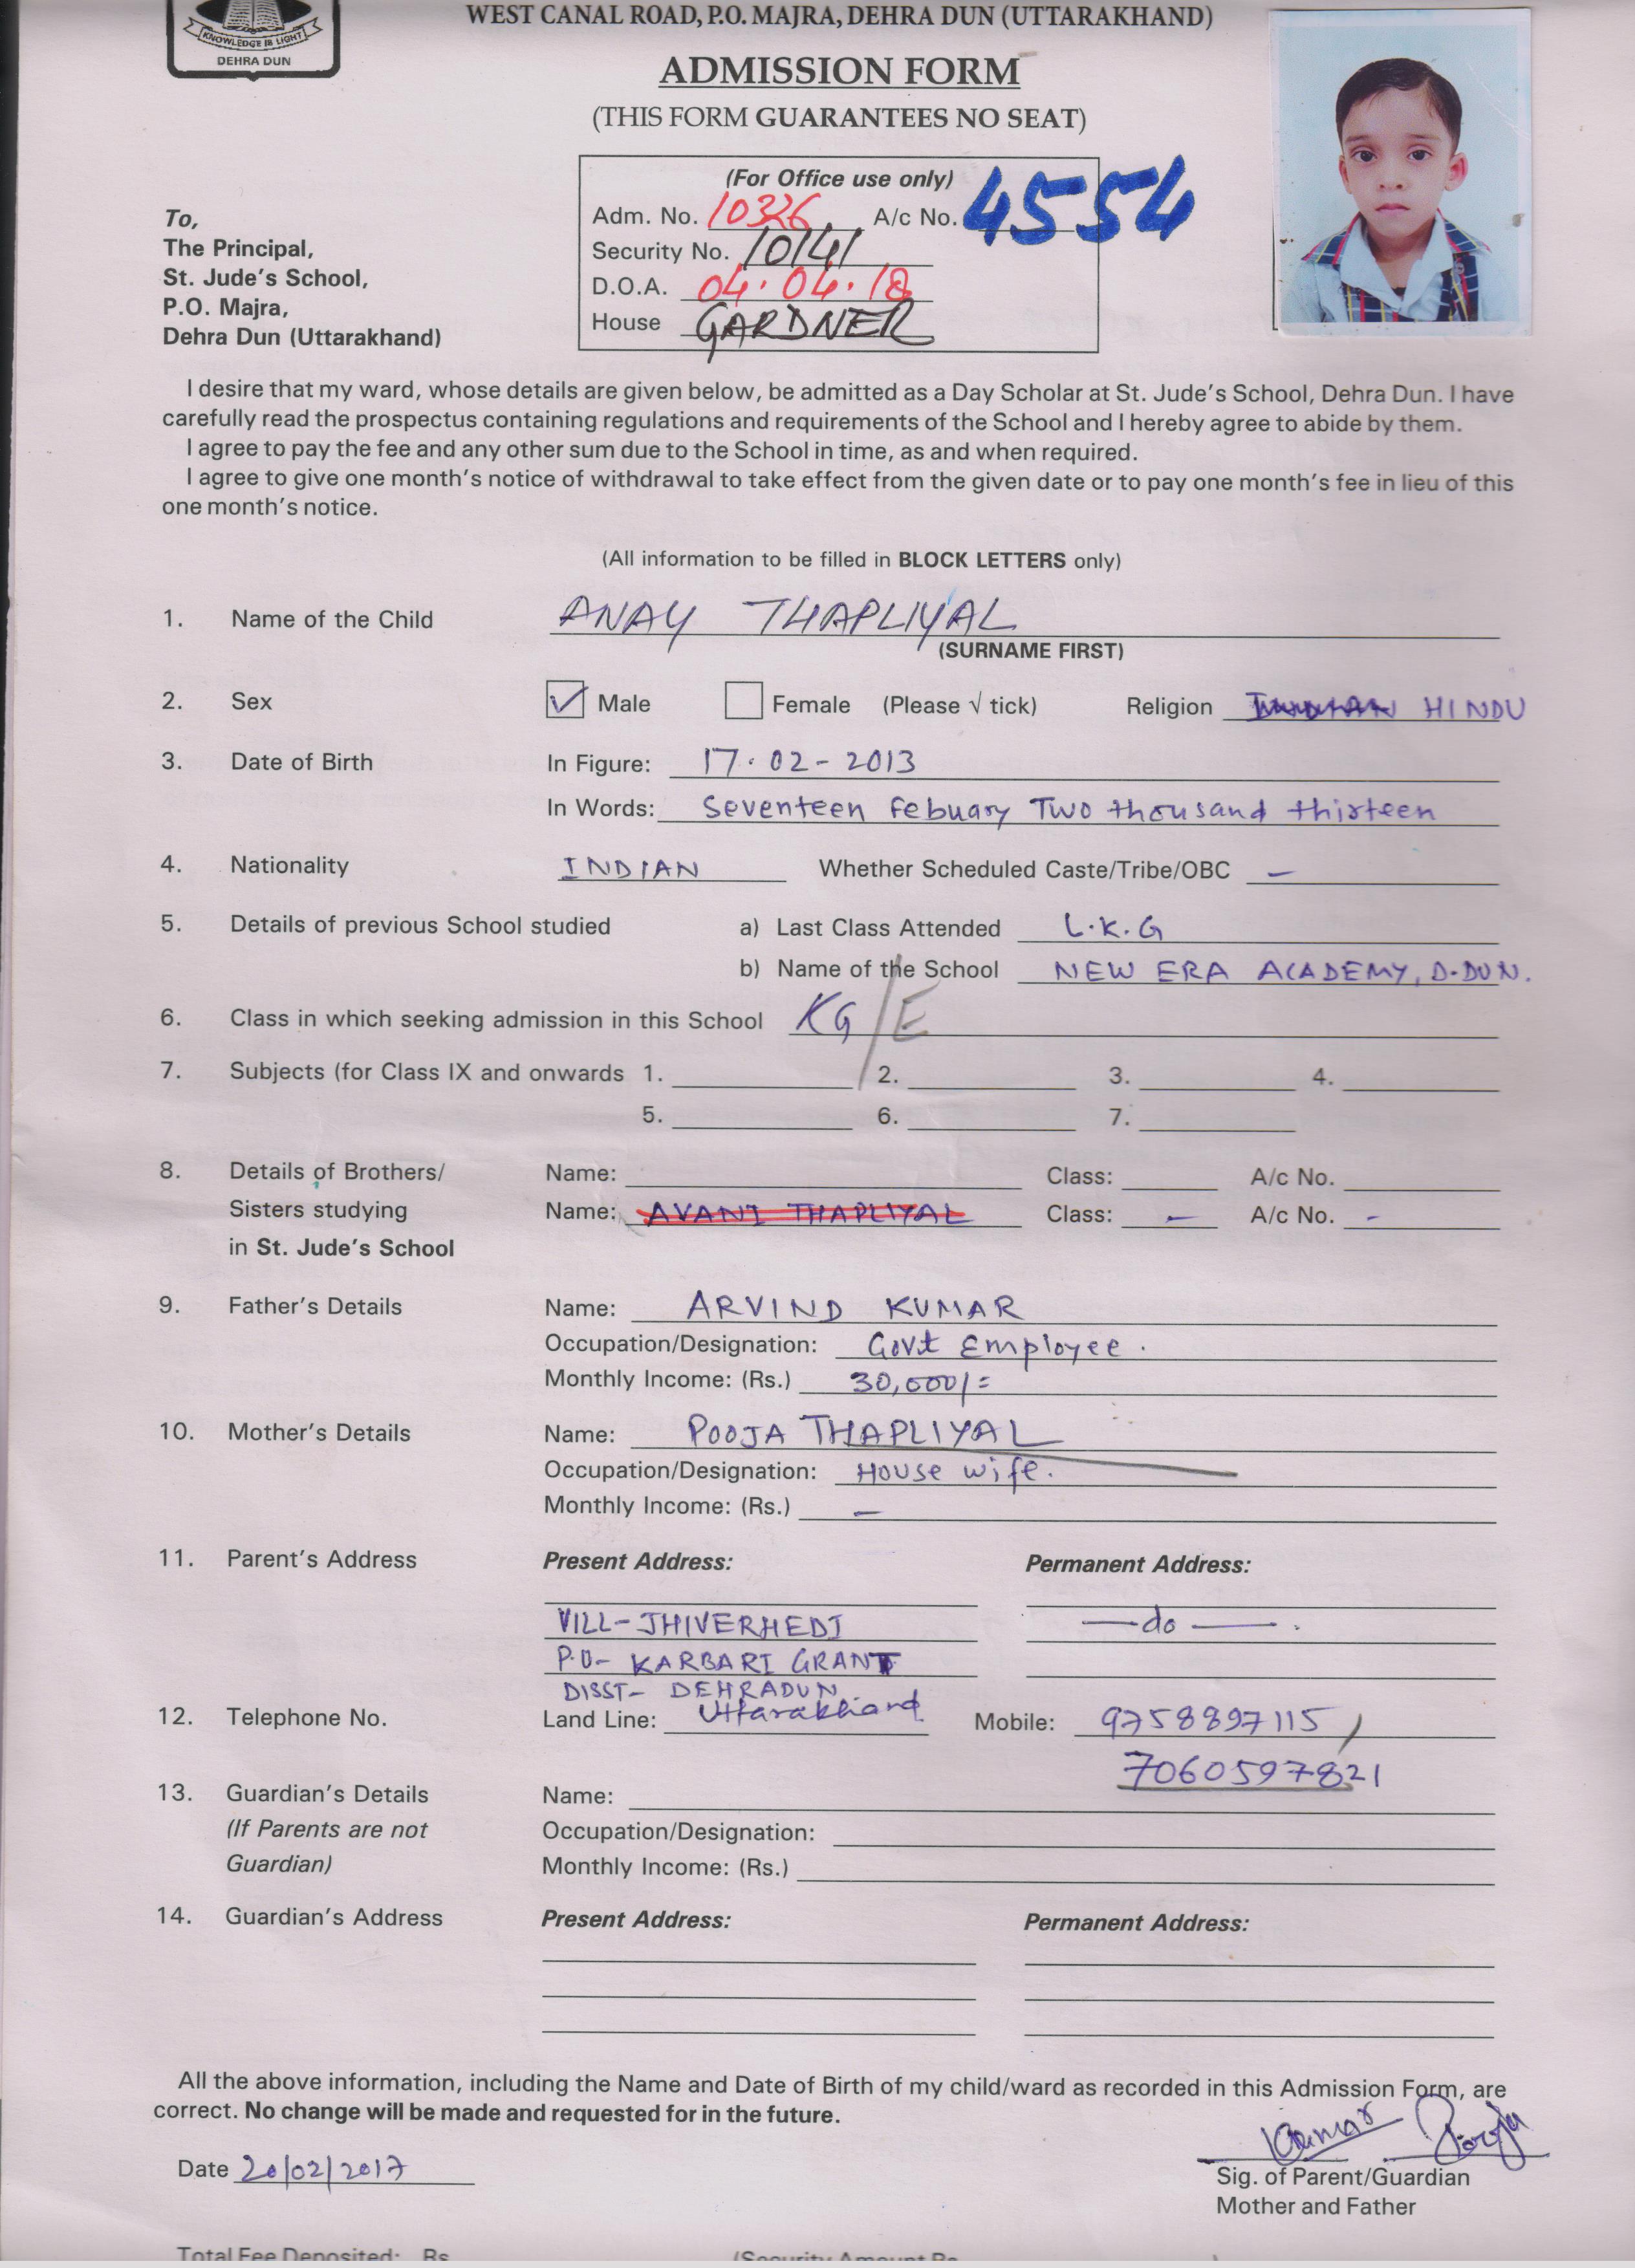 WEST CANAL ROAD, P.O. MAJRA, DEHRA DUN (UTTARAKHAND)
KNOWLEDGE IS LIGHT
DEHRA DUN
ADMISSION FORM
(THIS FORM GUARANTEES NO SEAT)
(For Office use only)
Adm. No. 10326 A/c No. 4554
Security No. 10141
D.O.A. 04.04.18
House GARDNER
To,
The Principal,
St. Jude's School,
P.O. Majra,
Dehra Dun (Uttarakhand)
I desire that my ward, whose details are given below, be admitted as a Day Scholar at St. Jude's School, Dehra Dun. I have
carefully read the prospectus containing regulations and requirements of the School and I hereby agree to abide by them.
I agree to pay the fee and any other sum due to the School in time, as and when required.
I agree to give one month's notice of withdrawal to take effect from the given date or to pay one month's fee in lieu of this
one month's notice.
(All information to be filled in BLOCK LETTERS only)
1. Name of the Child ANAY THAPLIYAL
(SURNAME FIRST)
2. Sex Male Female (Please √ tick) Religion HINDU
3. Date of Birth In Figure: 17.02-2013
In Words: Seventeen Febuary Two thousand thirteen
4. Nationality INDIAN Whether Scheduled Caste/Tribe/OBC —
5. Details of previous School studied a) Last Class Attended L.K.G
b) Name of the School NEW ERA ACADEMY, D-DUN.
6. Class in which seeking admission in this School KG/E
7. Subjects (for Class IX and onwards 1. 2. 3. 4.
5. 6. 7.
8. Details of Brothers/ Name: Class: A/c No.
Sisters studying Name: AVANI THAPLIYAL Class: — A/c No. -
in St. Jude's School
9. Father's Details Name: ARVIND KUMAR
Occupation/Designation: Govt Employee.
Monthly Income: (Rs.) 30,000/=
10. Mother's Details Name: POOJA THAPLIYAL
Occupation/Designation: House wife.
Monthly Income: (Rs.) —
11. Parent's Address Present Address: Permanent Address:
VILL-JHIVERHEDI —do—.
P.O- KARBARI GRANT
DISST- DEHRADUN
Uttarakhand
12. Telephone No. Land Line: Mobile: 9758897115,
7060597821
13. Guardian's Details Name:
(If Parents are not Occupation/Designation:
Guardian) Monthly Income: (Rs.)
14. Guardian's Address Present Address: Permanent Address:
All the above information, including the Name and Date of Birth of my child/ward as recorded in this Admission Form, are
correct. No change will be made and requested for in the future.
Kumar Pooja
Date 20/02/2017
Sig. of Parent/Guardian
Mother and Father
Total Fee Deposited: Rs. (Security Amount Rs. )